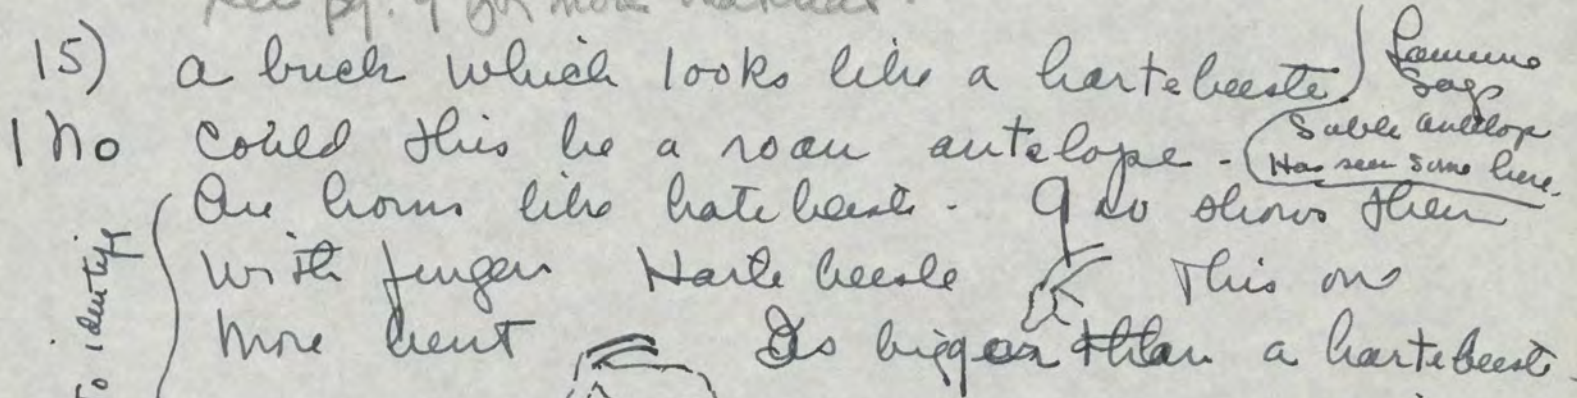 See pg. 9 for more
15) a buck which looks like a hartebeeste)
says
Sable antelop
Has seen some here.
1 No could this be a roan antelope -
Are horns like hatebeest. shows them
with fingers Hartebeeste This one
more bent Is bigger than a hartebeest.
To identify